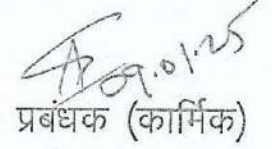 09.01.25
प्रबंधक (कार्मिक)